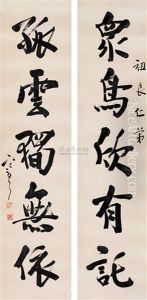 祖良仁弟
眾鳥欣有託
孤雲獨無依